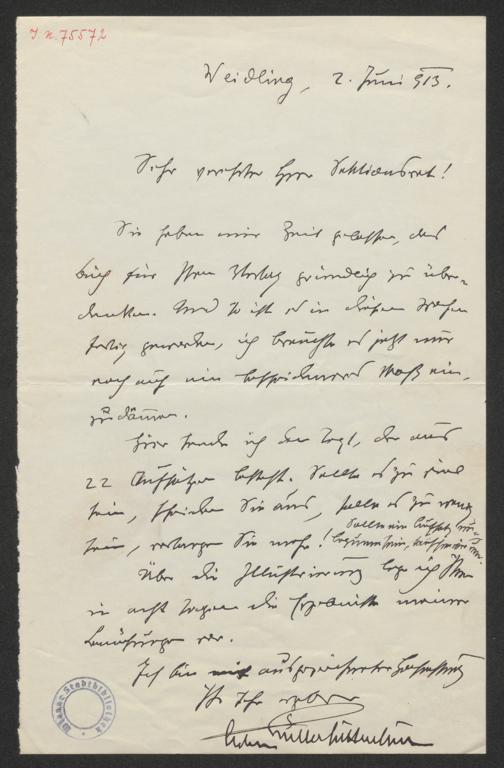 I.N. 75572
Weidling, 2. Juni 913.
Sehr verehrter Herr Sektionsrat!
Sie haben mir Zeit gelassen, das
Buch für Ihren Verlag gründlich zu über-
denken. Und so ist es in diesen Wochen
fertig geworden, ich brauchte es jetzt nur
noch auf ein bescheideneres Maß ein-
zudämmen.
Hier sende ich den Text, der aus
22 Aufsätzen besteht. Sollte es zu viel
sein, scheiden Sie aus, sollte es zu wenig
sein, verlangen Sie mehr! Sollte ein Aufsatz
Über die Illustrierung lege ich Ihnen
in acht Tagen die Ergebnisse meiner
Bemühungen vor.
Ich bin mit ausgezeichneter Hochachtung
Ihr Ihr ergebener
Wiener Stadtbibliothek